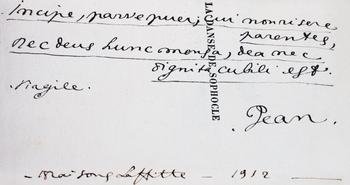 Incipe, parve puer; cui non risere
parentes,
nec deus hunc mensa, dea nec
dignita cubili est.
Virgile.
Jean.
LA DANSE DE SOPHOCLE
— Maisons Laffitte — 1912 —